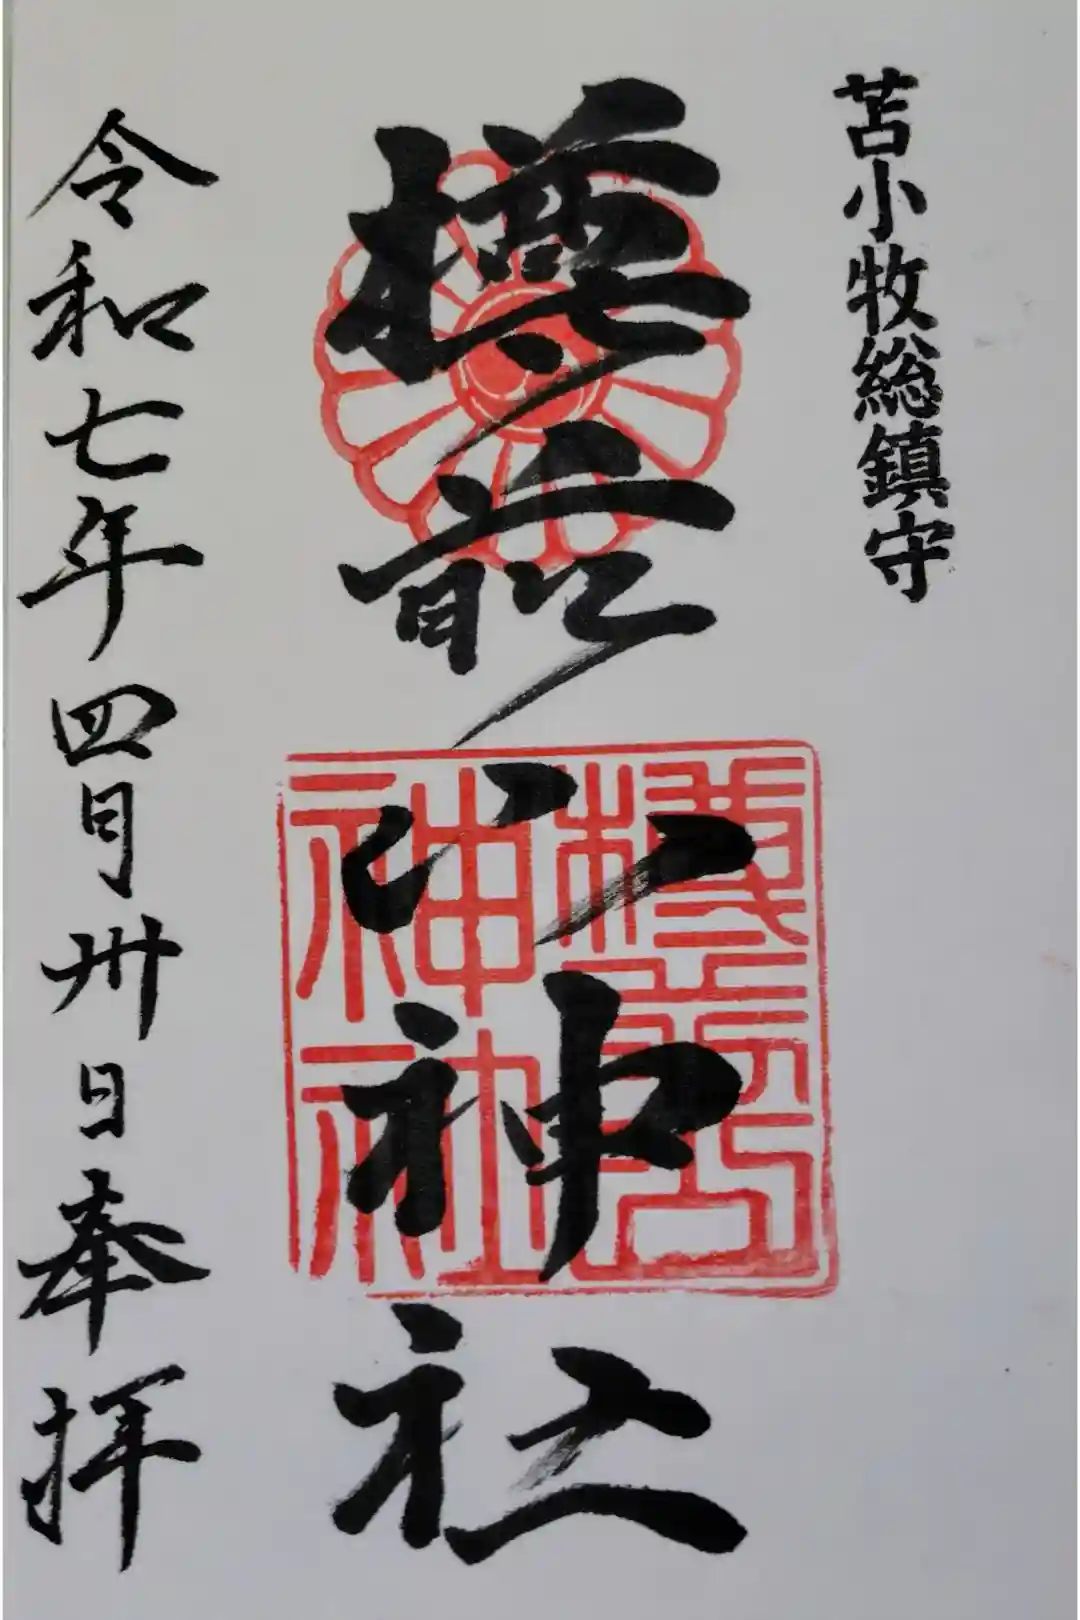 苫小牧総鎮守
樽前山神社
令和七年四月卅日奉拝